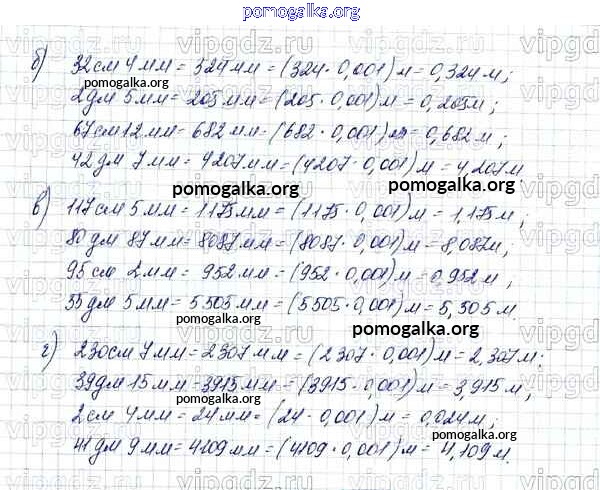 pomogalka.org
б) 32 см 4 мм = 324 мм = (324 · 0,001) м = 0,324 м;
pomogalka.org
2 дм 5 мм = 205 мм = (205 · 0,001) м = 0,205 м;
67 см 12 мм = 682 мм = (682 · 0,001) м = 0,682 м;
42 дм 7 мм = 4207 мм = (4207 · 0,001) м = 4,207 м
pomogalka.org pomogalka.org
в) 117 см 5 мм = 1175 мм = (1175 · 0,001) м = 1,175 м;
80 дм 87 мм = 8087 мм = (8087 · 0,001) м = 8,087 м;
95 см 2 мм = 952 мм = (952 · 0,001) м = 0,952 м;
55 дм 5 мм = 5505 мм = (5505 · 0,001) м = 5,505 м.
pomogalka.org pomogalka.org
г) 230 см 7 мм = 2307 мм = (2307 · 0,001) м = 2,307 м;
39 дм 15 мм = 3915 мм = (3915 · 0,001) м = 3,915 м;
2 см 4 мм = 24 мм = (24 · 0,001) м = 0,024 м;
pomogalka.org pomogalka.org
41 дм 9 мм = 4109 мм = (4109 · 0,001) м = 4,109 м.